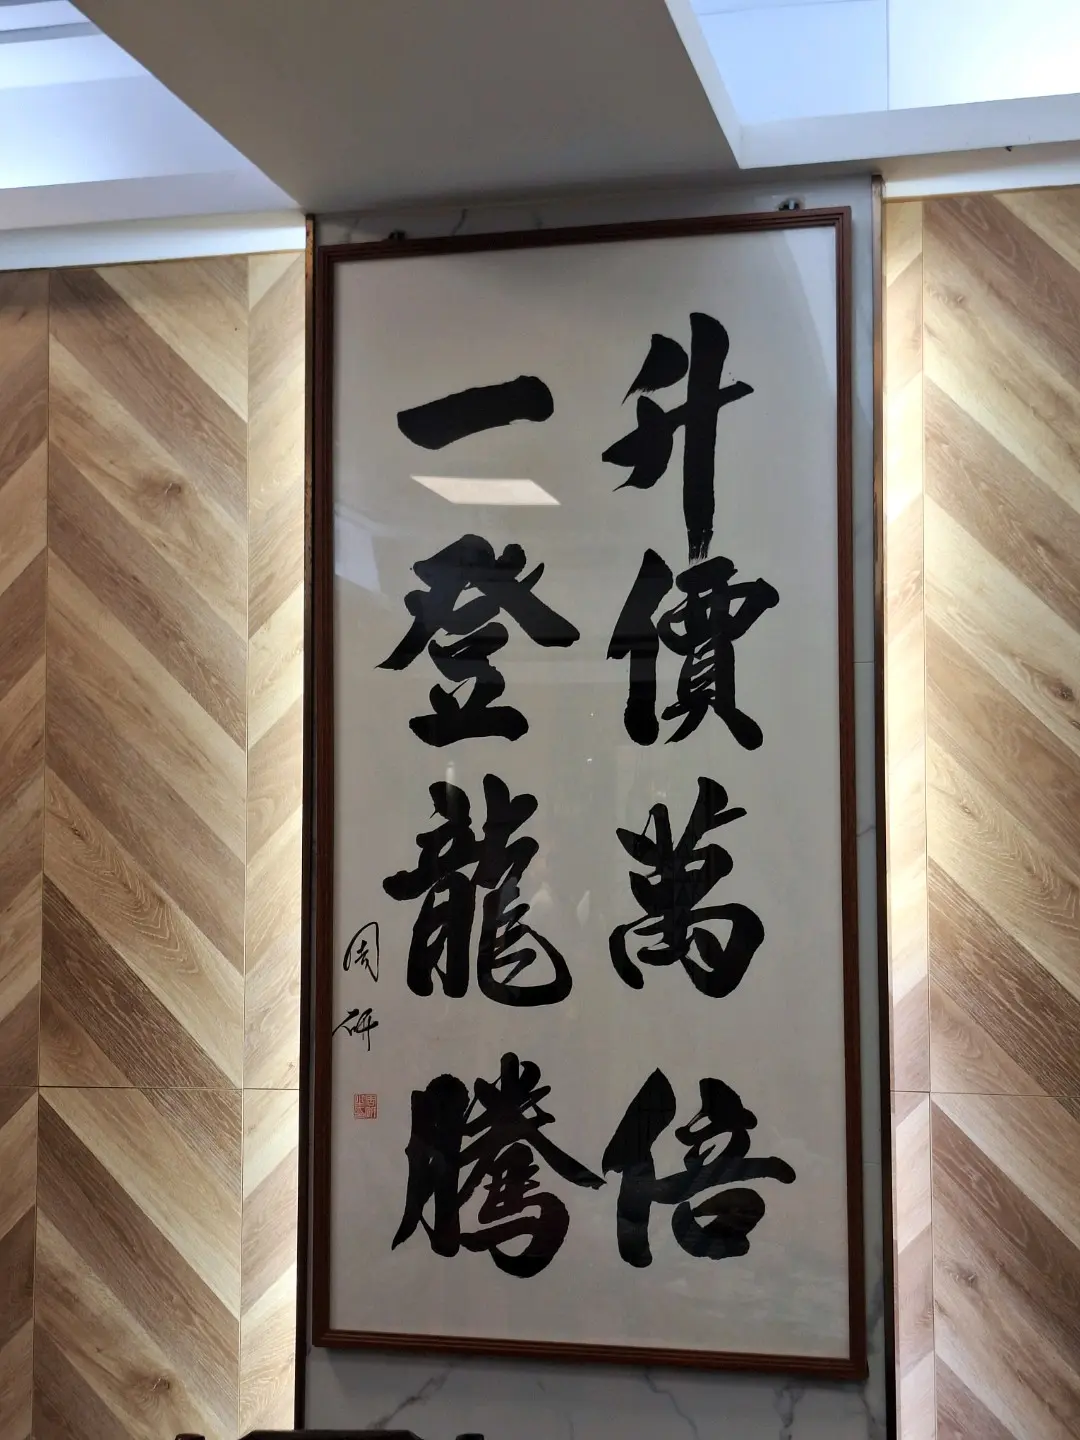 升價萬倍
一登龍騰
周研